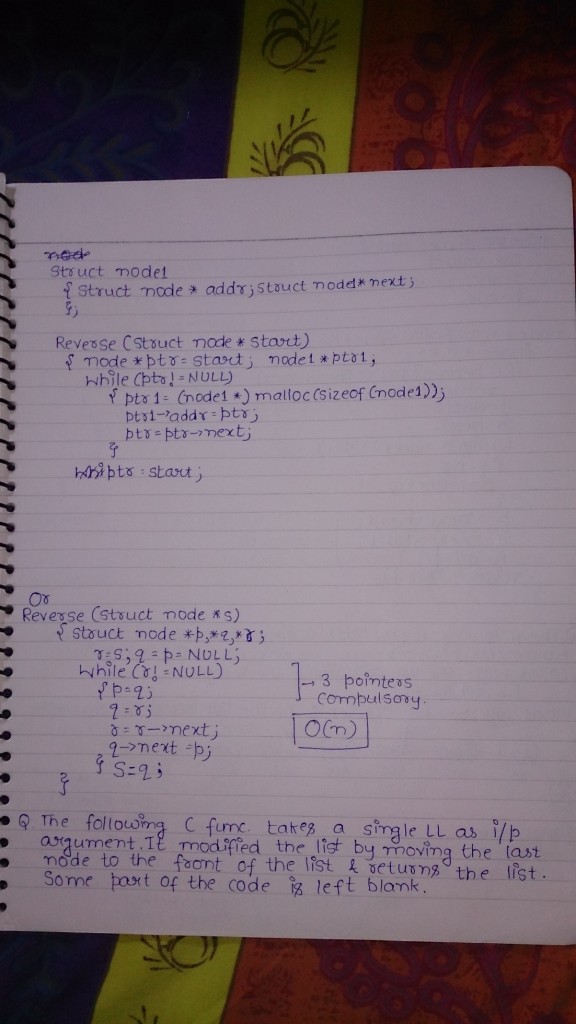 struct node1
{ struct node * addr; struct node1* next;
};
Reverse (struct node * start)
{ node *ptr = start; node1 *ptr1;
while (ptr != NULL)
{ ptr1 = (node1 *) malloc(sizeof(node1));
ptr1->addr = ptr;
ptr = ptr->next;
}
ptr = start;
Or
Reverse (struct node *s)
{ struct node *p,*q,*r;
r=s; q = p = NULL;
while (r! = NULL)
{ p=q;
q=r;
r=r->next;
q->next = p;
} S=q;
}
3 pointers
compulsory.
O(n)
Q. The following C func. takes a single LL as i/p
argument. It modified the list by moving the last
node to the front of the list & returns the list.
Some part of the code is left blank.